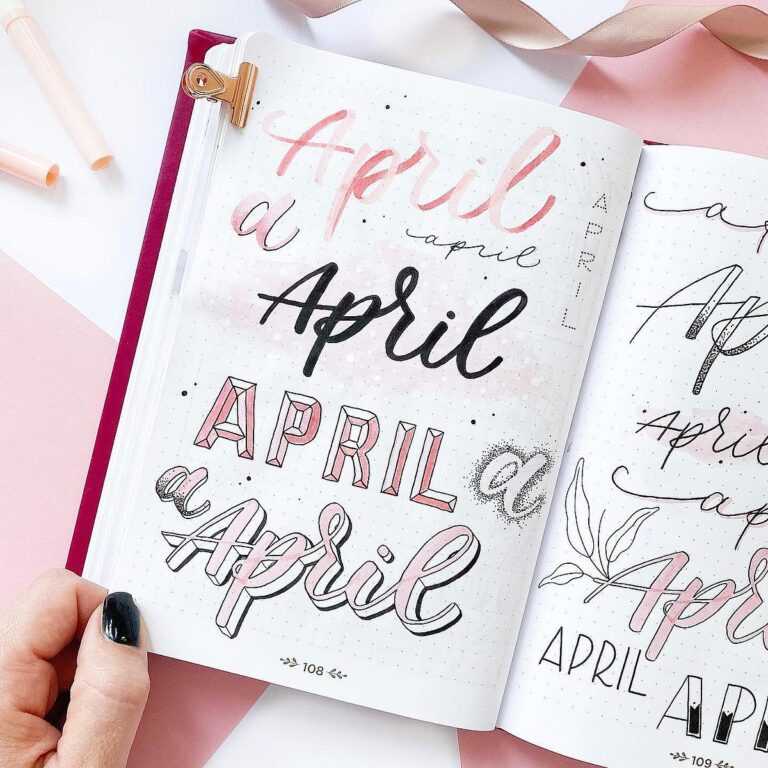 April
a april
APRIL
April
APRIL
a
a
April
108
April
APRIL
109